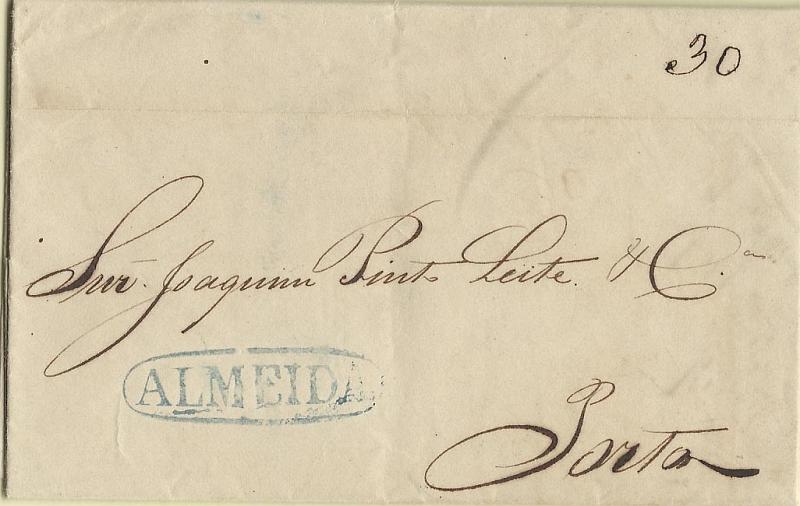 30
Snr. Joaquim Pinto Leite & C.ª
ALMEIDA
Porto